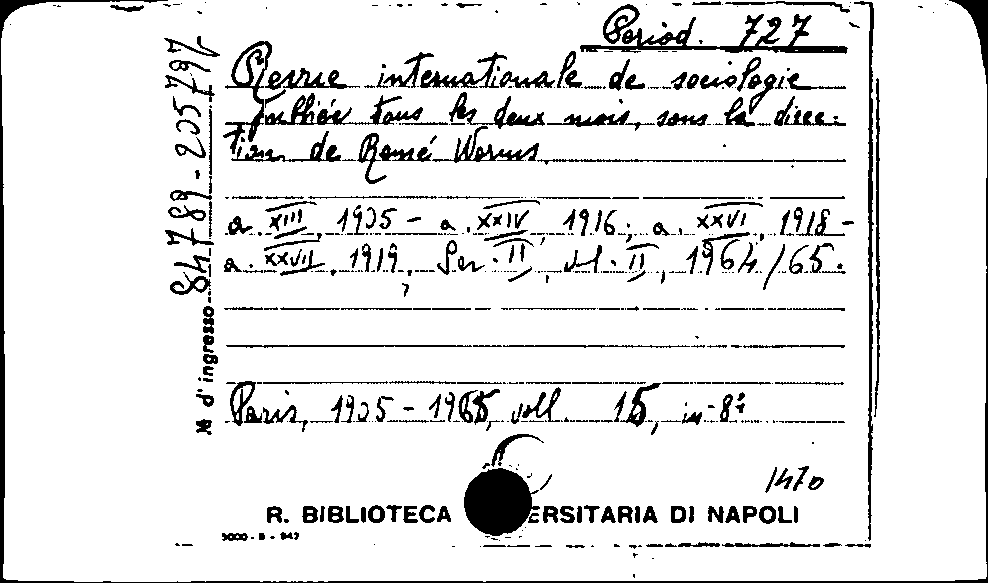 Period. 727
Revue internationale de sociologie
publiée tous les deux mois, sous la direc-
tion de René Worms.
a. XIII, 1905 - a. XXIV, 1916; a. XXVI, 1918 -
a. XXVII, 1919, Ser. II, vol. II, 1964/65.
Paris, 1905 - 1965, voll. 15, in-8º
1470
R. BIBLIOTECA ERSITARIA DI NAPOLI
№ d'ingresso 84789-205797